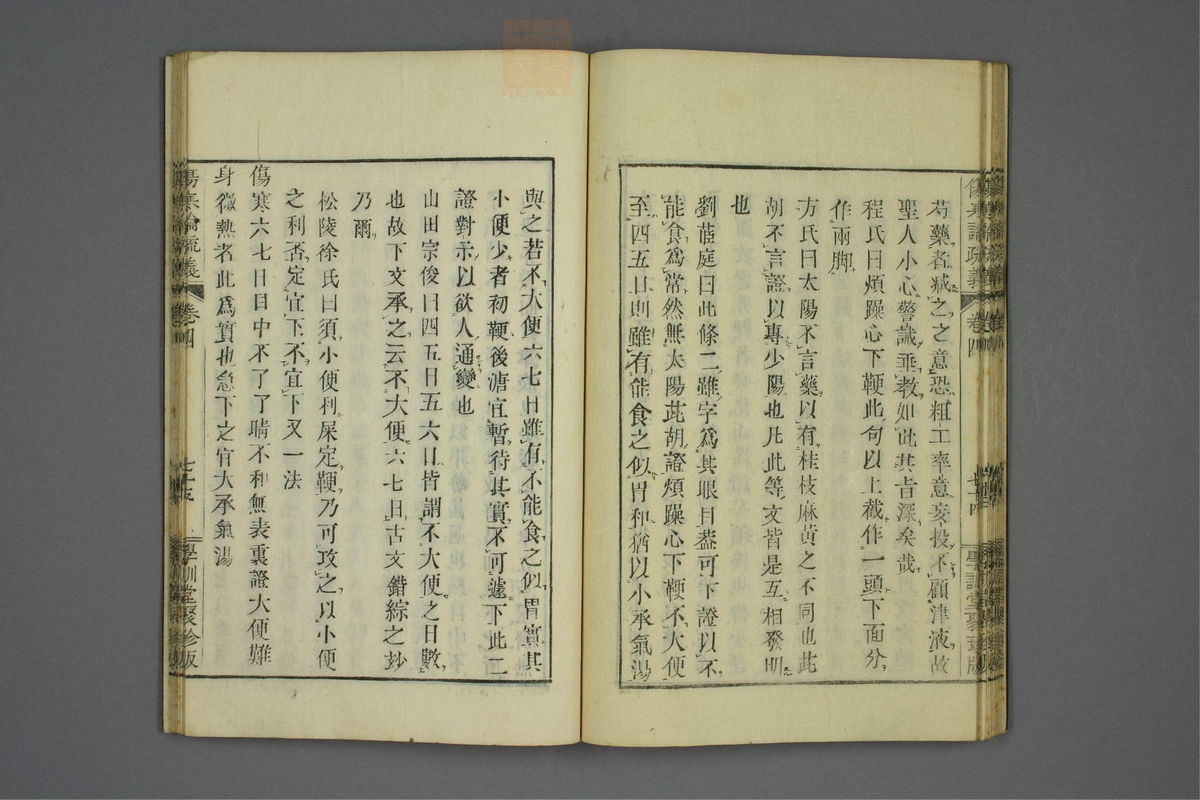 芍藥者減之之意恐粗工率意妄投不顧津液故
聖人小心警誡垂教如此其旨深矣哉
程氏曰煩躁心下鞕此句以上截作一頭下面分
作兩脚
方氏曰太陽不言藥以有桂枝麻黃之不同也此
胡不言證以專少陽也凡此等文皆是互相發明
也
劉茝庭曰此條二雖字爲其眼目蓋可下證以不
能食爲常然無太陽茈胡證煩躁心下鞕不大便
至四五日則雖有能食之似胃和猶以小承氣湯
傷寒論疏義 卷四 七十四 學訓堂聚珍版
與之若不大便六七日雖有不能食之似胃實其
小便少者初鞕後溏宜暫待其實不可遽下此二
證對示以欲人通變也
山田宗俊曰四五日五六日皆謂不大便之日數
也故下文承之云不大便六七日古文錯綜之妙
乃爾
松陵徐氏曰須小便利屎定鞕乃可攻之以小便
之利否定宜下不宜下又一法
傷寒六七日目中不了了睛不和無表裏證大便難
身微熱者此爲實也急下之宜大承氣湯
傷寒論疏義 卷四 七十五 學訓堂聚珍版